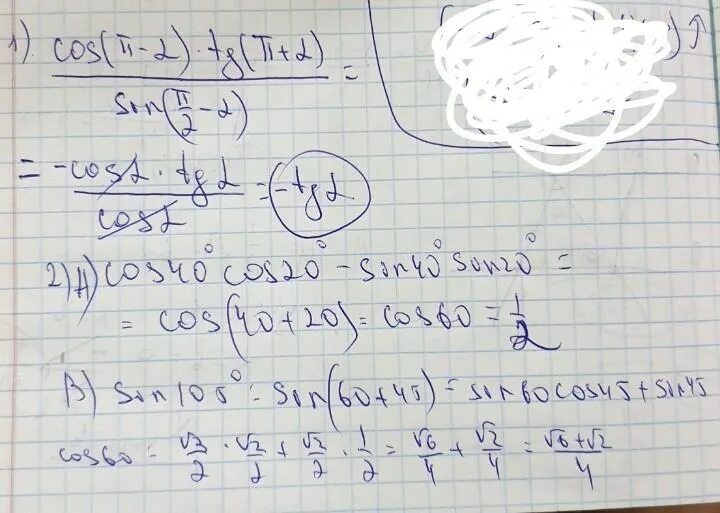 1). cos(π-α)·tg(π+α) / sin(π/2-α) =
= -cosα·tgα / cosα = -tgα
2) A) cos40° cos20° - sin40° sin20° =
= cos(40+20) = cos60 = 1/2
B) sin105° = sin(60+45) = sin60cos45 + sin45
cos60 = √3/2 · √2/2 + √2/2 · 1/2 = √6/4 + √2/4 = √6+√2/4